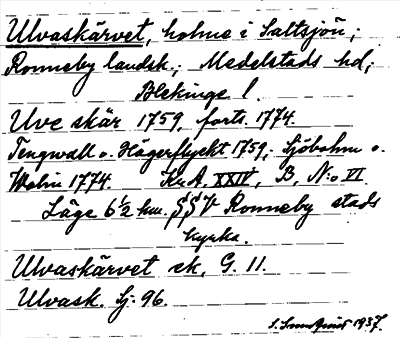 Ulvaskärvet, holme i Saltsjön;
Ronneby landsk.; Medelstads hd;
Blekinge l.
Uve skär 1759, forts. 1774.
Tengwall o. Hägerflyckt 1759; Sjöbohm o.
Wolin 1774. Kr. A. XXIV, B, N:o VI
Läge 6½ km. SSV Ronneby stads
kyrka.
Ulvaskärvet ek. G. 11.
Ulvask. Sj. 96.
1937.